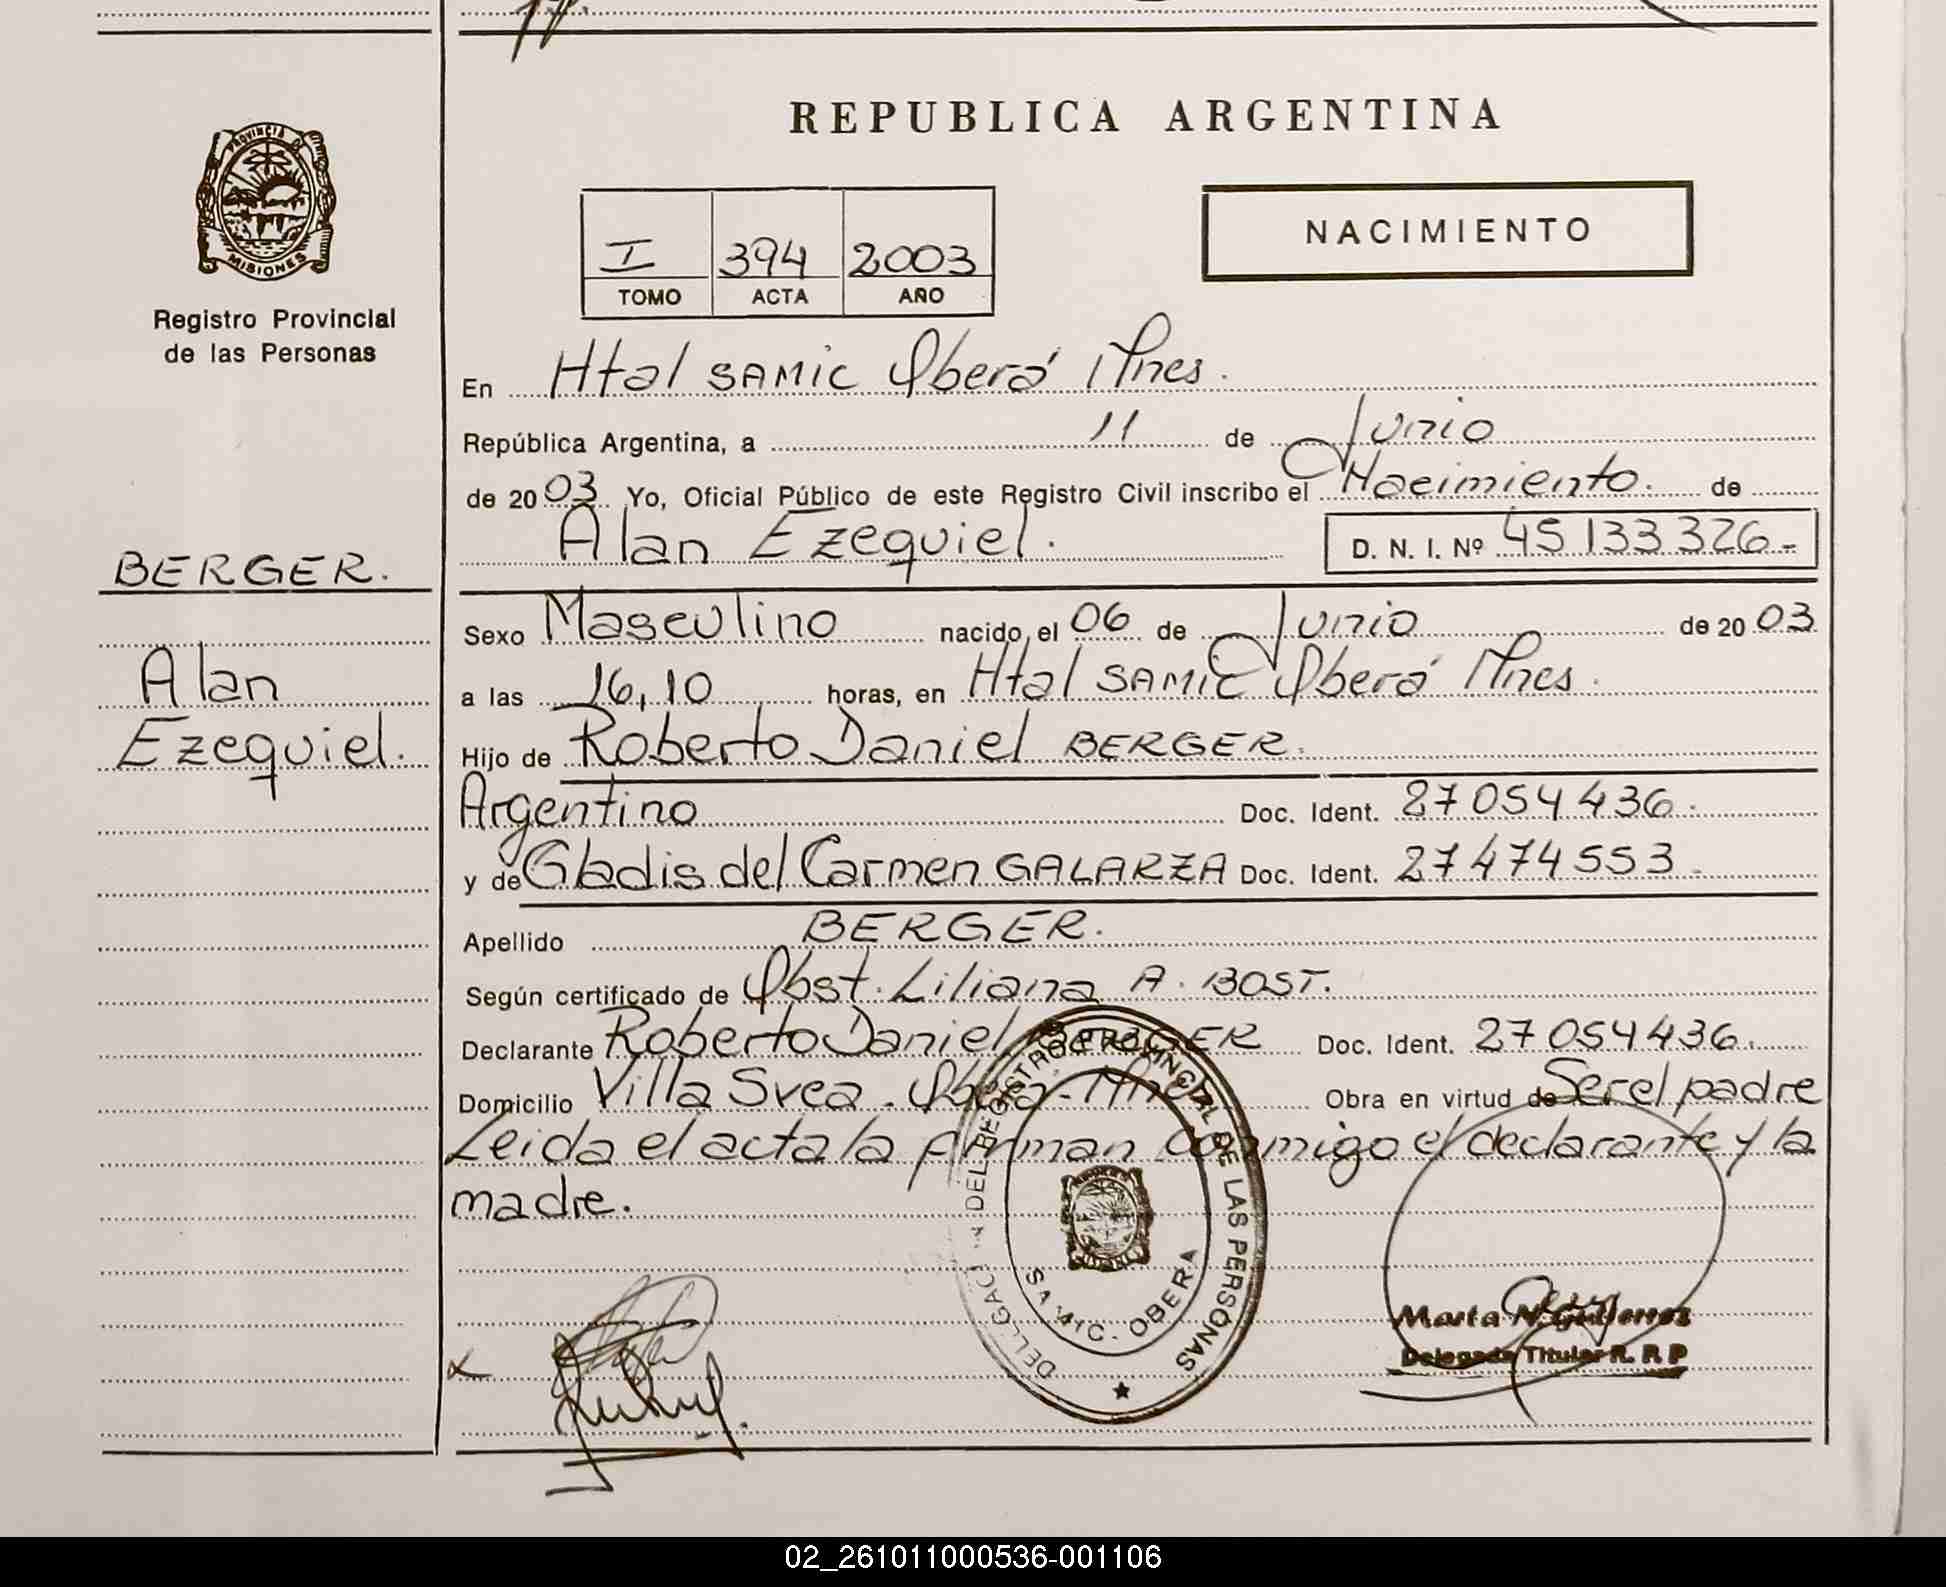 REPUBLICA ARGENTINA
PROVINCIA DE
MISIONES
Registro Provincial
de las Personas
I 394 2003
TOMO ACTA AÑO
NACIMIENTO
En Htal SAMIC Oberá Mnes.
República Argentina, a 11 de Junio
de 2003 Yo, Oficial Público de este Registro Civil inscribo el Nacimiento. de
Alan Ezequiel. D. N. I. Nº 45 133 326-
BERGER.
Alan
Ezequiel.
Sexo Masculino nacido el 06 de Junio de 2003
a las 16,10 horas, en Htal SAMIC Oberá Mnes.
Hijo de Roberto Daniel BERGER.
Argentino Doc. Ident. 27 054 436.
y de Gladis del Carmen GALARZA Doc. Ident. 27 474 553.
Apellido BERGER.
Según certificado de Obst. Liliana A. BOST.
Declarante Roberto Daniel BERGER Doc. Ident. 27 054 436.
Domicilio Villa Svea. Oberá-Mnes Obra en virtud de Ser el padre
Leida el acta la firman conmigo el declarante y la
madre.
DEL REGISTRO PROVINCIAL DE LAS PERSONAS
SAMIC. OBERA
Marta N. Gutierrez
Delegada Titular R. P. P
02_261011000536-001106